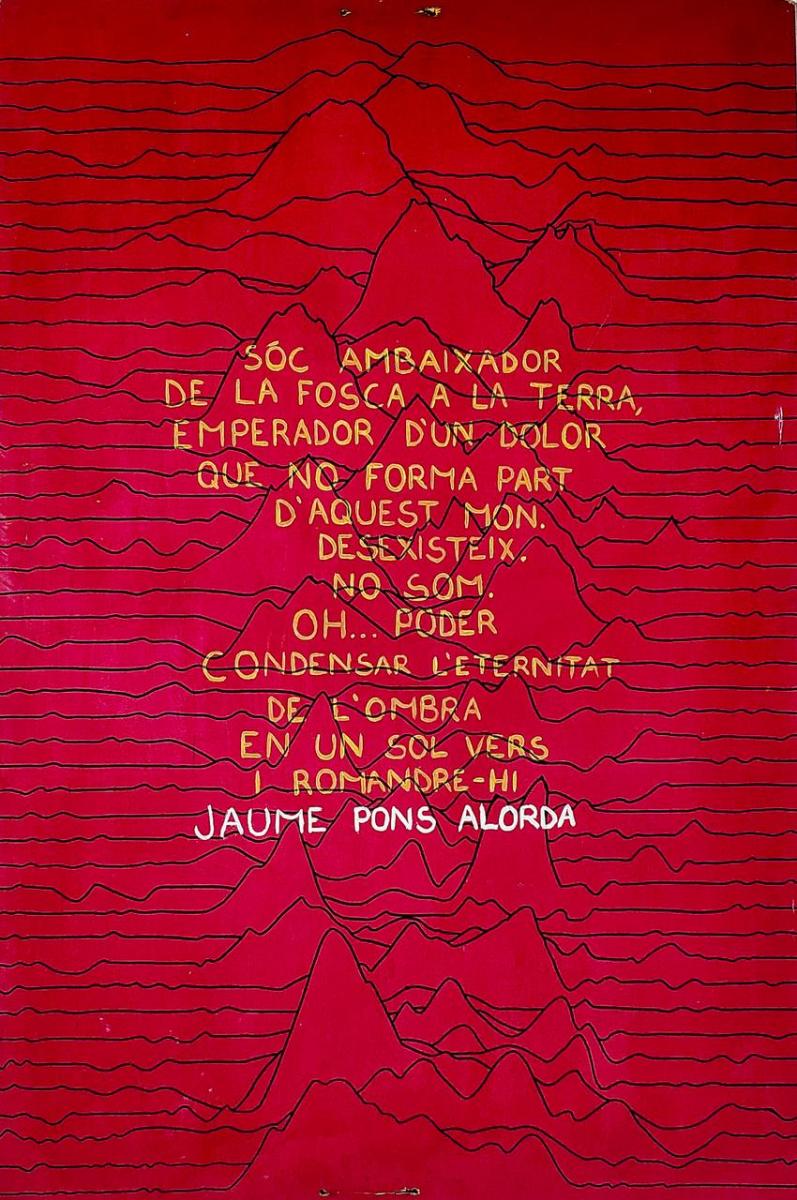 SÓC AMBAIXADOR
DE LA FOSCA A LA TERRA,
EMPERADOR D'UN DOLOR
QUE NO FORMA PART
D'AQUEST MON.
DESEXISTEIX.
NO SOM.
OH... PODER
CONDENSAR L'ETERNITAT
DE L'OMBRA
EN UN SOL VERS
I ROMANDRE-HI
JAUME PONS ALORDA